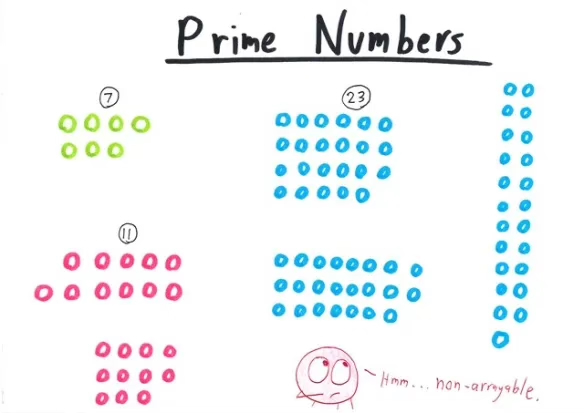 Prime Numbers
7
23
11
Hmm... non-arrayable.